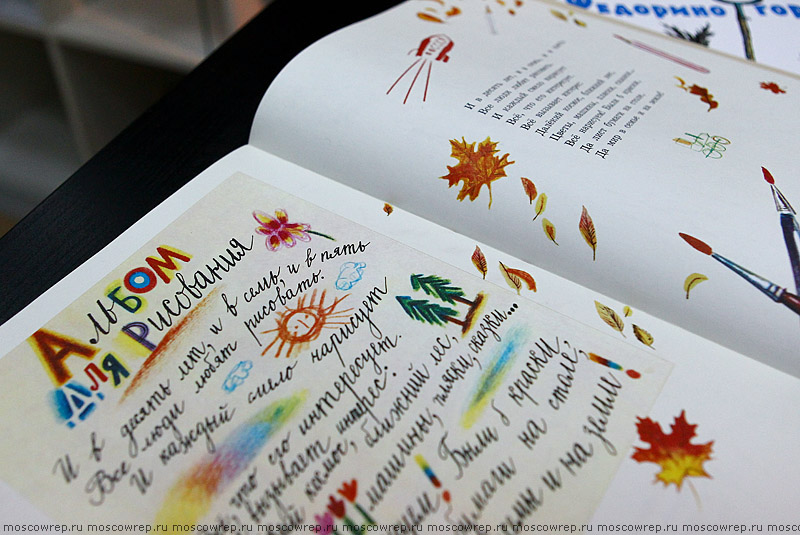 ФЕДОРИНО ГОР
И в десять лет, и в семь, и в пять
Все люди любят рисовать.
И каждый смело нарисует
Всё, что его интересует.
Всё вызывает интерес:
Далёкий космос, ближний лес,
Цветы, машины, пляски, сказки...
Всё нарисуем! Были б краски,
Да лист бумаги на столе,
Да мир в семье и на земле!
Альбом
для Рисования
И в десять лет, и в семь, и в пять
Все люди любят рисовать.
И каждый смело нарисует
что его интересует.
вызывает интерес:
космос, ближний лес,
машины, пляски, сказки...
ем! Были б краски,
маги на столе,
мьи и на земли
moscowrep.ru moscowrep.ru moscowrep.ru moscowrep.ru moscowrep.ru moscowrep.ru moscowrep.ru moscowrep.ru moscowrep.ru